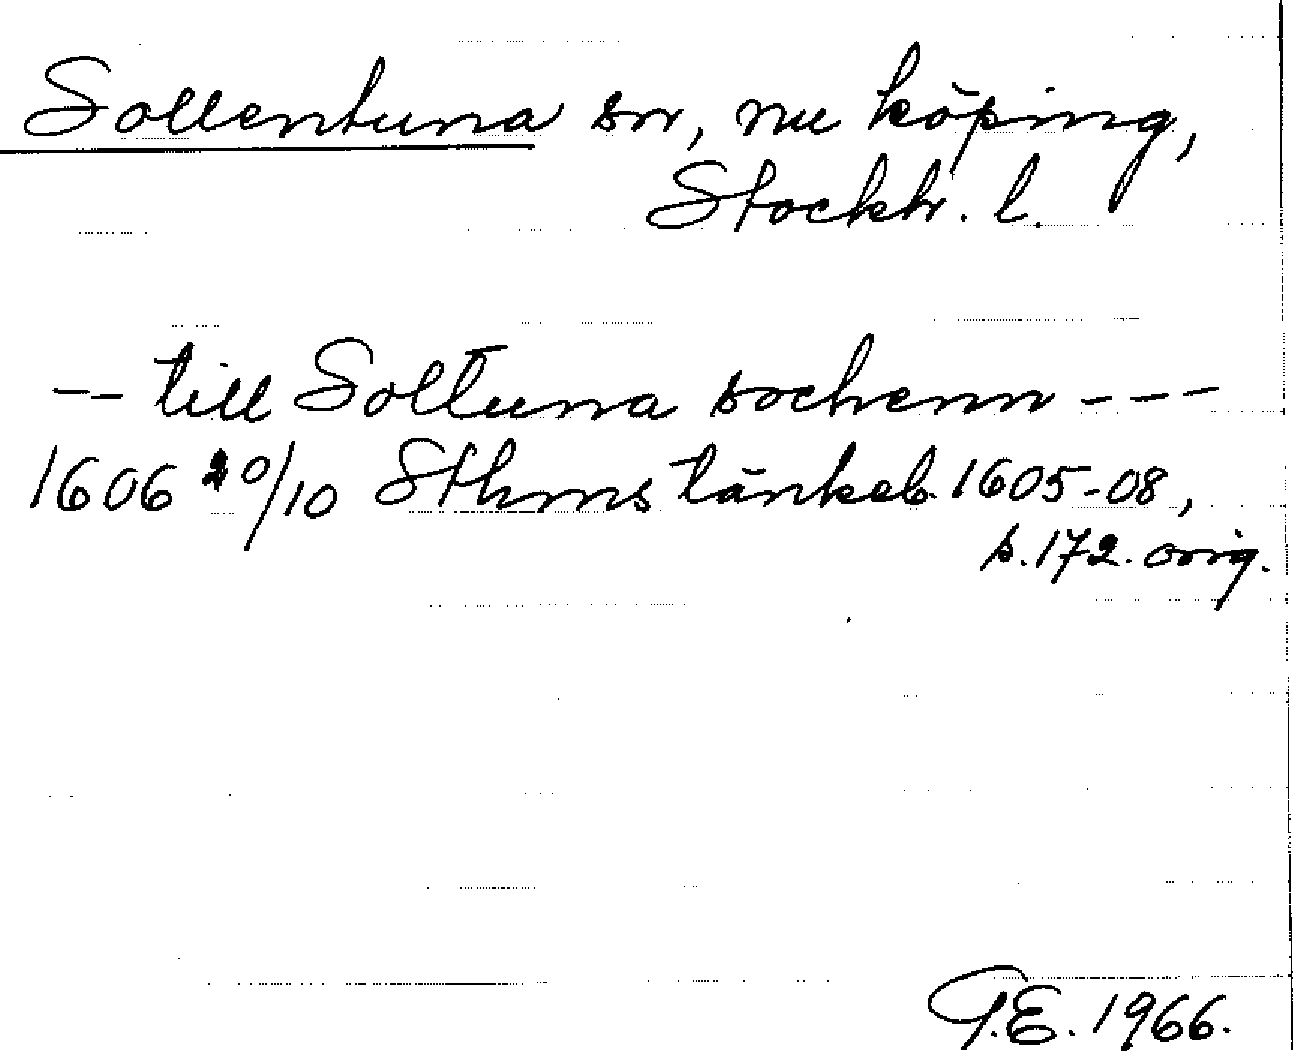 Sollentuna sn, nu köping,
Stockh. l.
-- till Soltuna sochenn ---
1606 20/10 Sthms tänkeb. 1605-08,
s. 172. orig.
G.E. 1966.